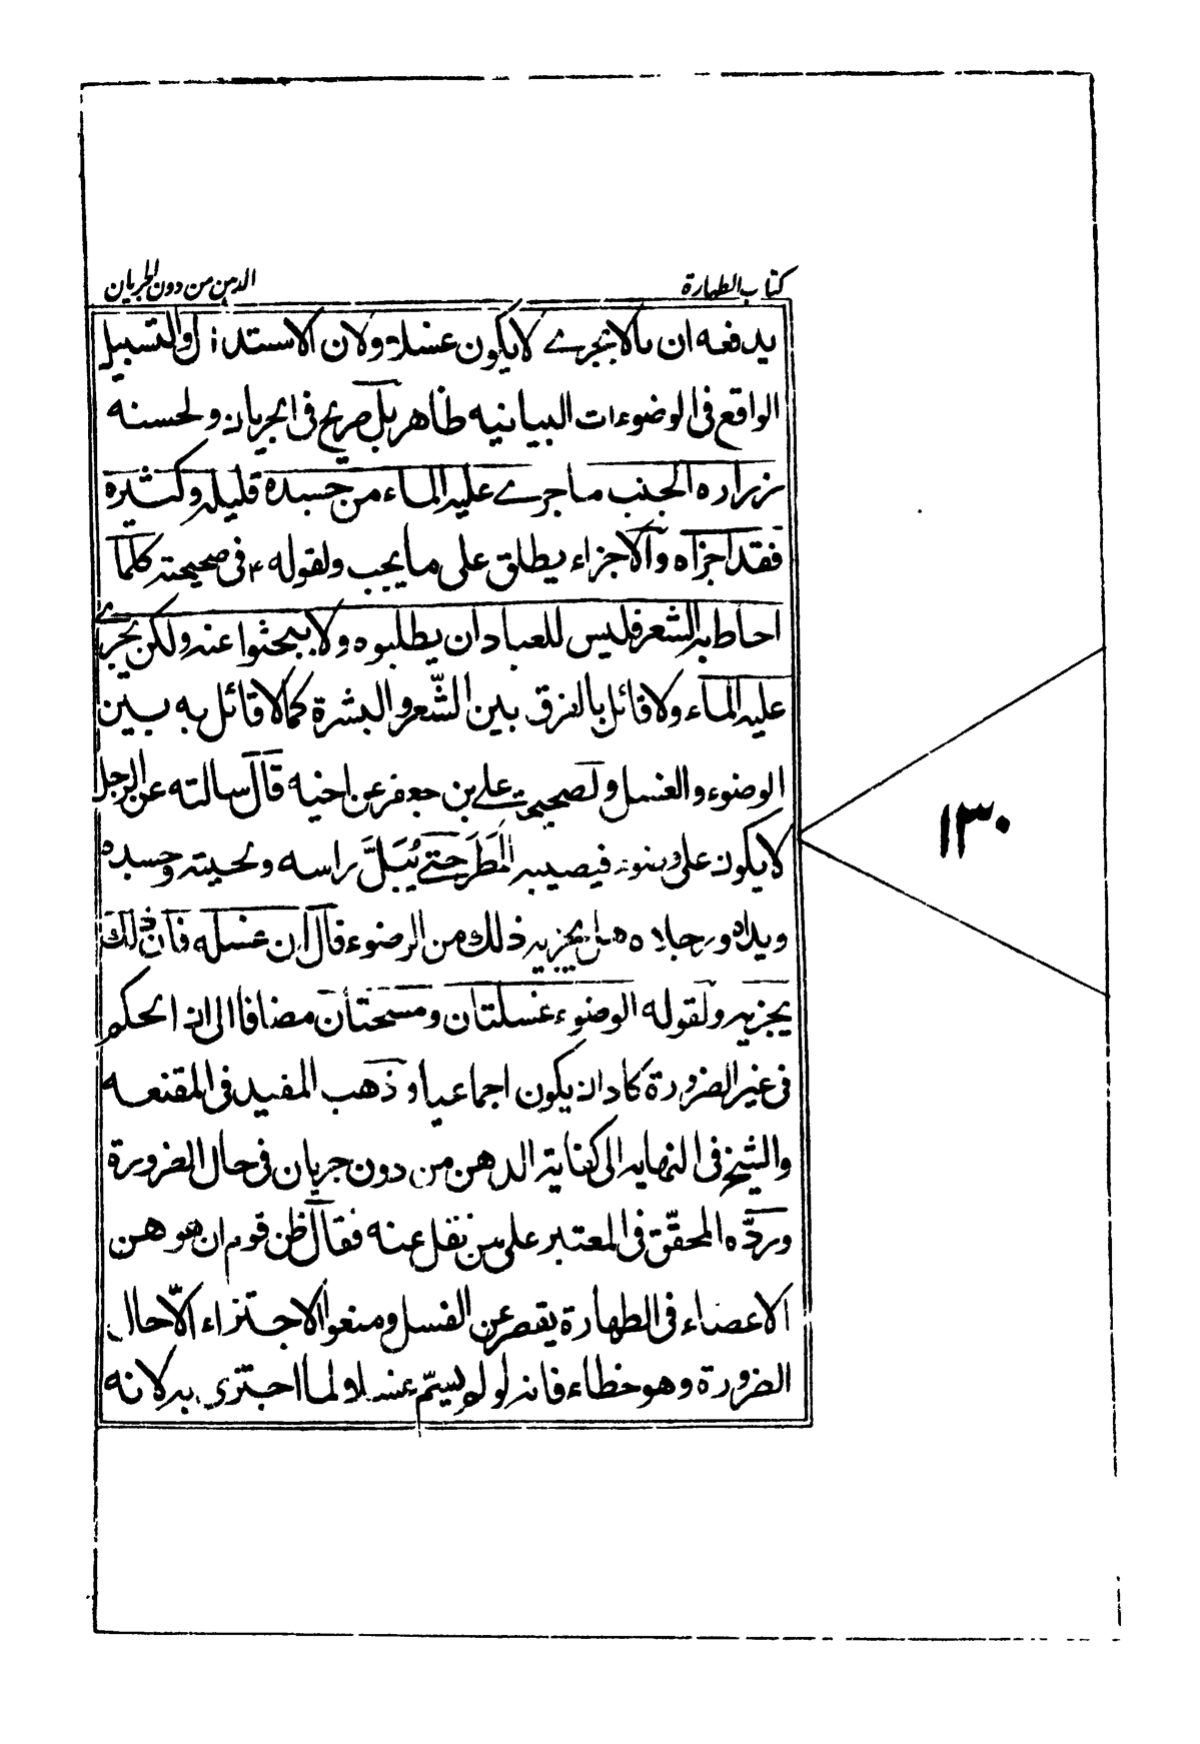 كتاب الطهارة
الدهن من دون الجريان
يدفعه ان مالا يجرے لا يكون غسلا ولان الاستدلال والتسبيل
الواقع فى الوضوءات البيانيه ظاهر بل صريح فى الجريان ولحسنه
زراره الجنب ماجرے عليه الماء من جسده قليله وكثيره
فقد اجزاه والاجزاء يطلق على ما يجب ولقوله ۴ فى صحيحته كلما
احاط به الشعر فليس للعباد ان يطلبوه ولا يبحثوا عنه ولكن يجرے
عليه الماء ولا قائل بالفرق بين الشّعر والبشرة كما لا قائل به بين
الوضوء والغسل ولصحيحة علے بن جعفر عن اخيه قال سالته عن الرجل
لا يكون على وضوء فيصيبه المَطَر حتے يُبَلَّ راسه ولحيته وجسده
ويداه ورجلاه هل يجزيه ذلك من الوضوء قال ان غسله فان ذلك
يجزيه ولقوله الوضوء غسلتان ومسحتان مضافا الى ان الحكم
فى غير الضرورة كاد ان يكون اجماعيا وذهب المفيد فى المقنعه
والشيخ فى النهايه الى كفاية الدهن من دون جريان فى حال الضرورة
وردّه المحقّق فى المعتبر على من نقل عنه فقال ظن قوم ان هو هن
الاعضاء فى الطهارة يقصر عن الغسل ومنعوا الاجتزاء الّا حال
الضرورة وهو خطاء فانه لو لم يسمّ غسلا ولما اجتزى به لانه
١٣٠